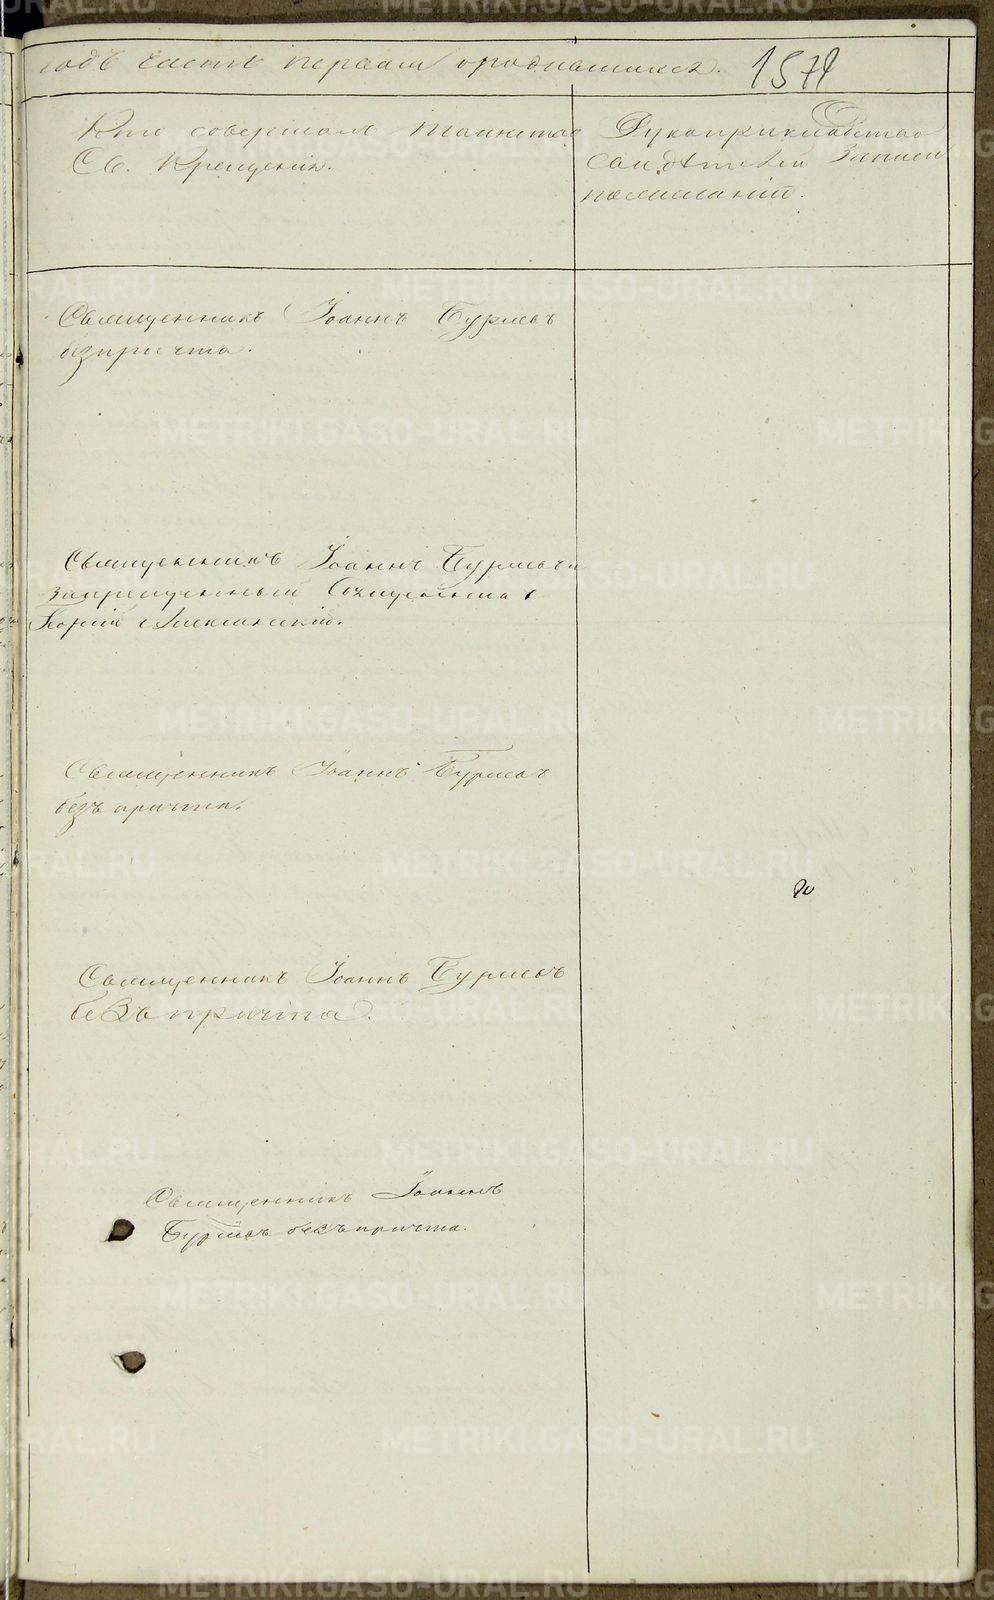 годъ часть первая ородившихся. 157
Кто совершалъ таинство
Св. Крещенія.
Рукоприкладство
свидѣтелей записи
по желанію.
Священникъ Іоаннъ Бурмовъ
безпричта.
Священникъ Іоаннъ Бурмовъ
запрещенный Священникъ
Георгій
Священникъ Іоаннъ Бурмовъ
безъ причта.
Священникъ Іоаннъ Бурмовъ
безъ причта.
Священникъ Іоаннъ
Бурмовъ безъ причта.
METRIKI.GASO-URAL.RU